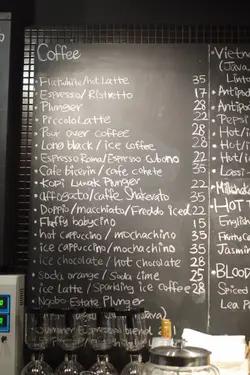 Coffee
Flatwhite/hot Latte 35
Espresso/Ristretto 17
Plunger 28
Piccolo Latte 22
Pour over coffee 28
Long black/ice coffee 28
Espresso Roma/Espresso Cubano 22
Cafe bicerin/cafe cohete 35
Kopi Luwak Plunger
Affogato/caffe Shakerato 35
Doppio/macchiato/Freddo iced 22
Fluffy babycino 15
hot cappuccino/mochachino 35
ice cappuccino/mochachino 35
ice chocolate/hot chocolate 28
Soda orange/Soda Lime 25
ice Latte/Sparking ice coffee 28
Ngobo Estate Plunger
Summer Espresso blend
Vietna
(Java
Lim
Antipod
Antipo
Pepsi
Hot /
Hot/i
Hot/
Lassi
Milksha
HOT T
English
Jasmin
BLOO
Spiced
Lea P